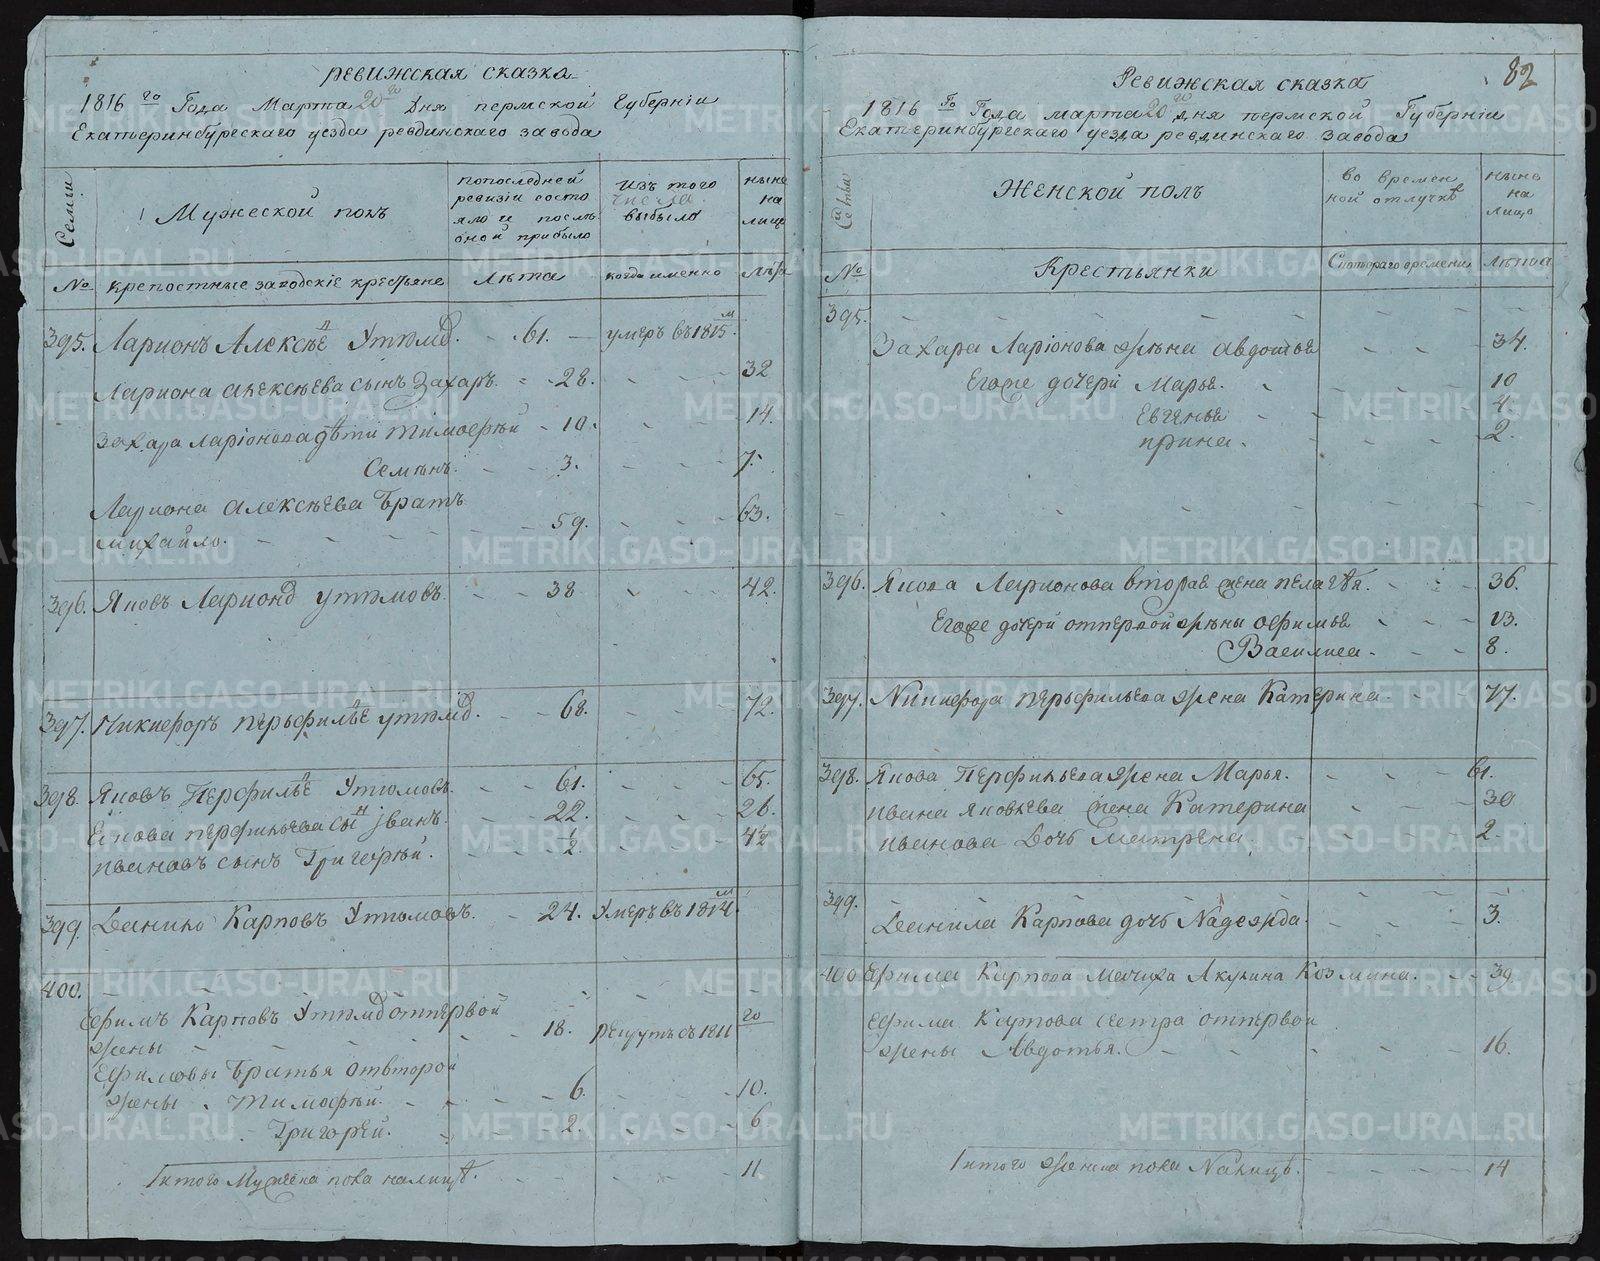 ревижская сказка
1816 го Года Марта 20 го Дня пермской Губерніи
Екатеринбургскаго уезда ревдинскаго завода
Семьи
Мужеской полъ
попоследней
ревизіи состо
яло и послѣ
оной прибыло
Изъ того
числа
выбыло
ныне
на
лицо
№
крепостные заводскіе крестьяне
Лѣта
когда именно
лѣта
395.
Ларионъ Алексѣе Утюмо
61.
умеръ въ 1815 м
Лариона алексѣева сынъ Захаръ
28.
32
Захара ларіонова дѣти тимофѣй
10.
14.
Семенъ
3.
7.
Лариона алексѣева братъ
михайло.
59.
63.
396.
Яковъ Ларионо утюмовъ
38
42.
397.
Никифоръ перьфилье утюмо.
68.
72.
398.
Яковъ Перфилье Утюмовъ
61.
65.
Якова перфильева сын іванъ.
22.
26.
ивановъ сынъ Григорѣй.
½
4½
399
Данило Карповъ Утюмовъ.
24.
Умеръ въ 1814 м
400.
Ефимъ Карповъ Утюмо отпервой
жены
18.
Рекрутъ съ 1811 го
Ефимовы братья отвторой
жены Тимофѣй
6.
10.
Григорей.
2.
6
Iитого Мужеска пола налицѣ.
11
82
Ревижская сказка
1816 го Года марта 20 го дня пермской Губерніи
Екатеринбургскаго уезда ревдинскаго завода
Семьи
Женской полъ
во времен
ной отлучкѣ
ныне
на
лицо
№
Крестьянки
Скотораго времени
Лѣта
395.
Захара Ларіонова жѣна авдотья
34.
Егоже дочери Марья.
10
Евгенья
4.
ирина.
2.
396.
Якова Ларионова вторая жена пелагѣя.
36.
Егоже дочери отпервой жѣны офимья
13.
Василиса
8.
397.
Никифора перьфильева жена Катерина
77.
398.
Якова Перфильева жена Марья.
61.
ивана яковлева жена Катерина
30
иванова Дочь Матрена.
2.
399.
Данила Карпова дочь Надежда.
3.
400.
Ефима Карпова Мачиха Акулина Козмина.
39
Ефима Карпова сестра отпервои
жены Авдотья.
16.
Iитого женска пола Налицѣ.
14
METRIKI.GASO-URAL.RU